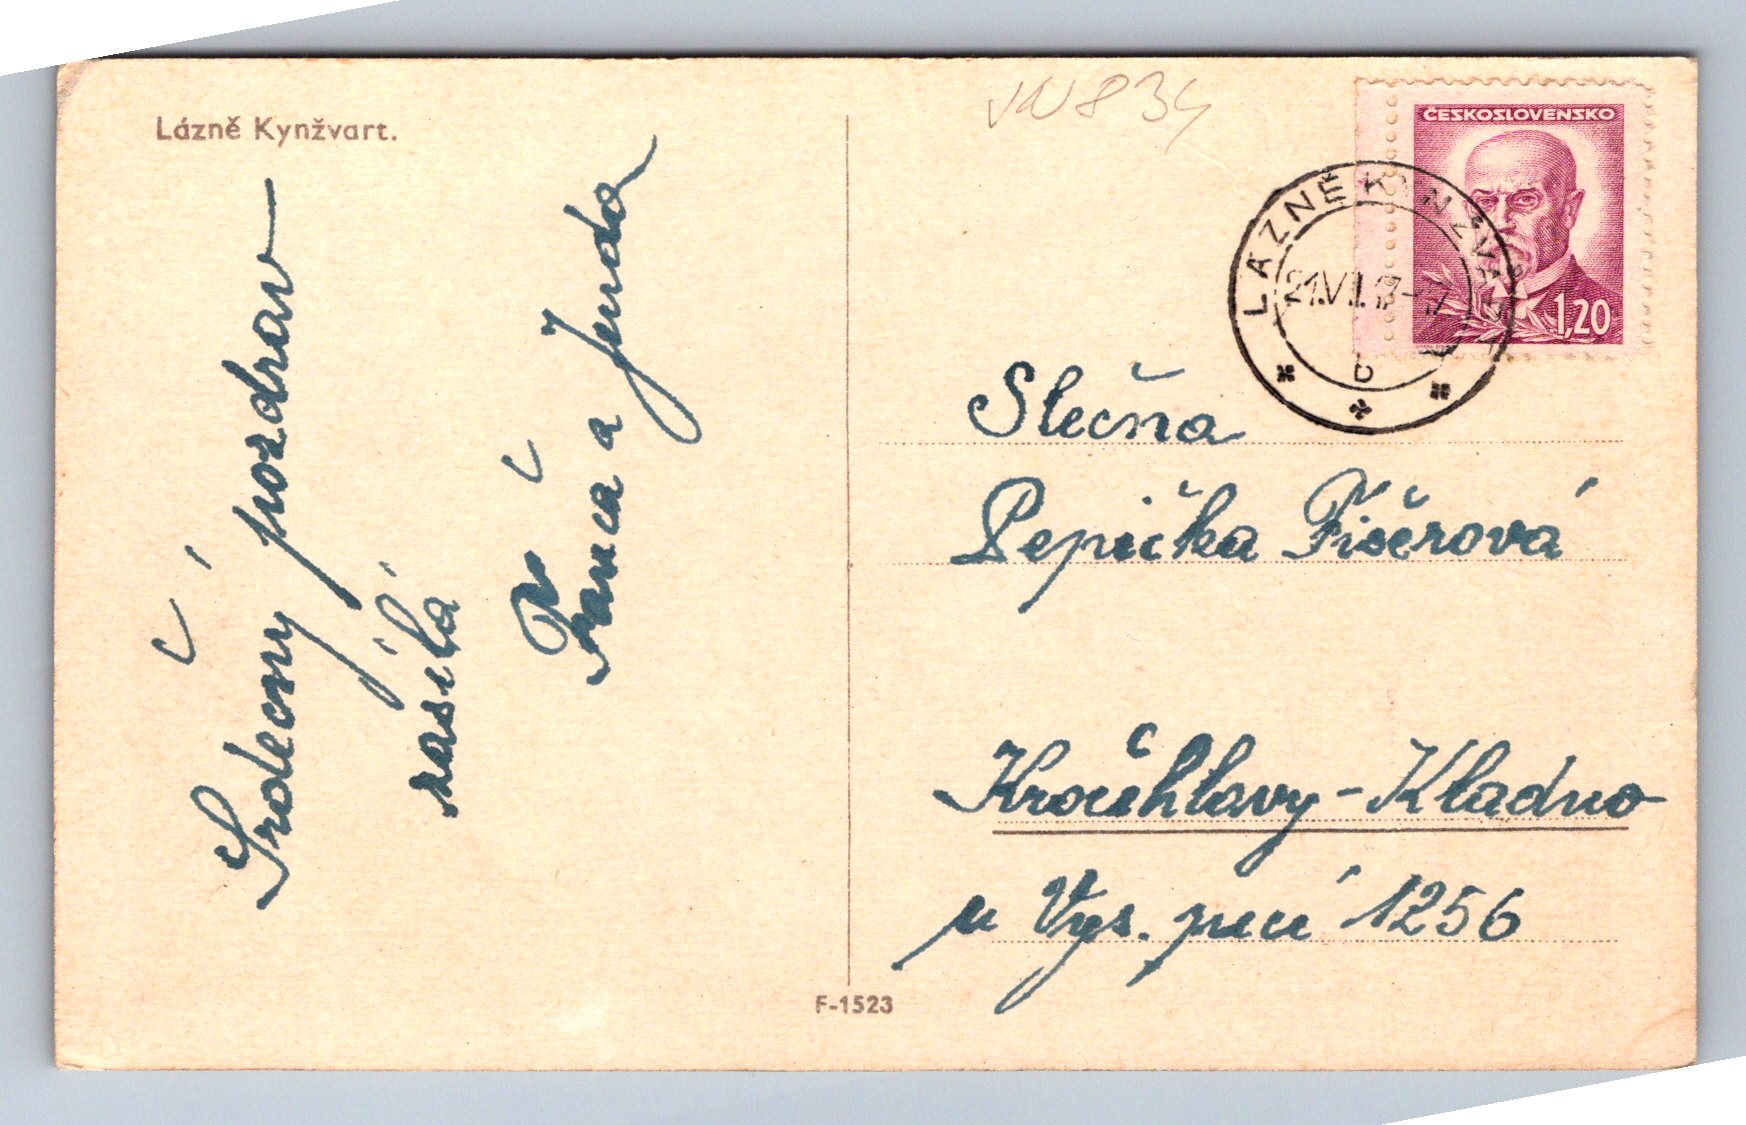 Lázně Kynžvart.
Srdečný pozdrav
zasílá
Franca a Jenda
ČESKOSLOVENSKO
1,20
LÁZNĚ KYNŽVART
b
Slečna
Pepička Fišerová
Kročehlavy - Kladno
u Vys. pecí 1256
F-1523